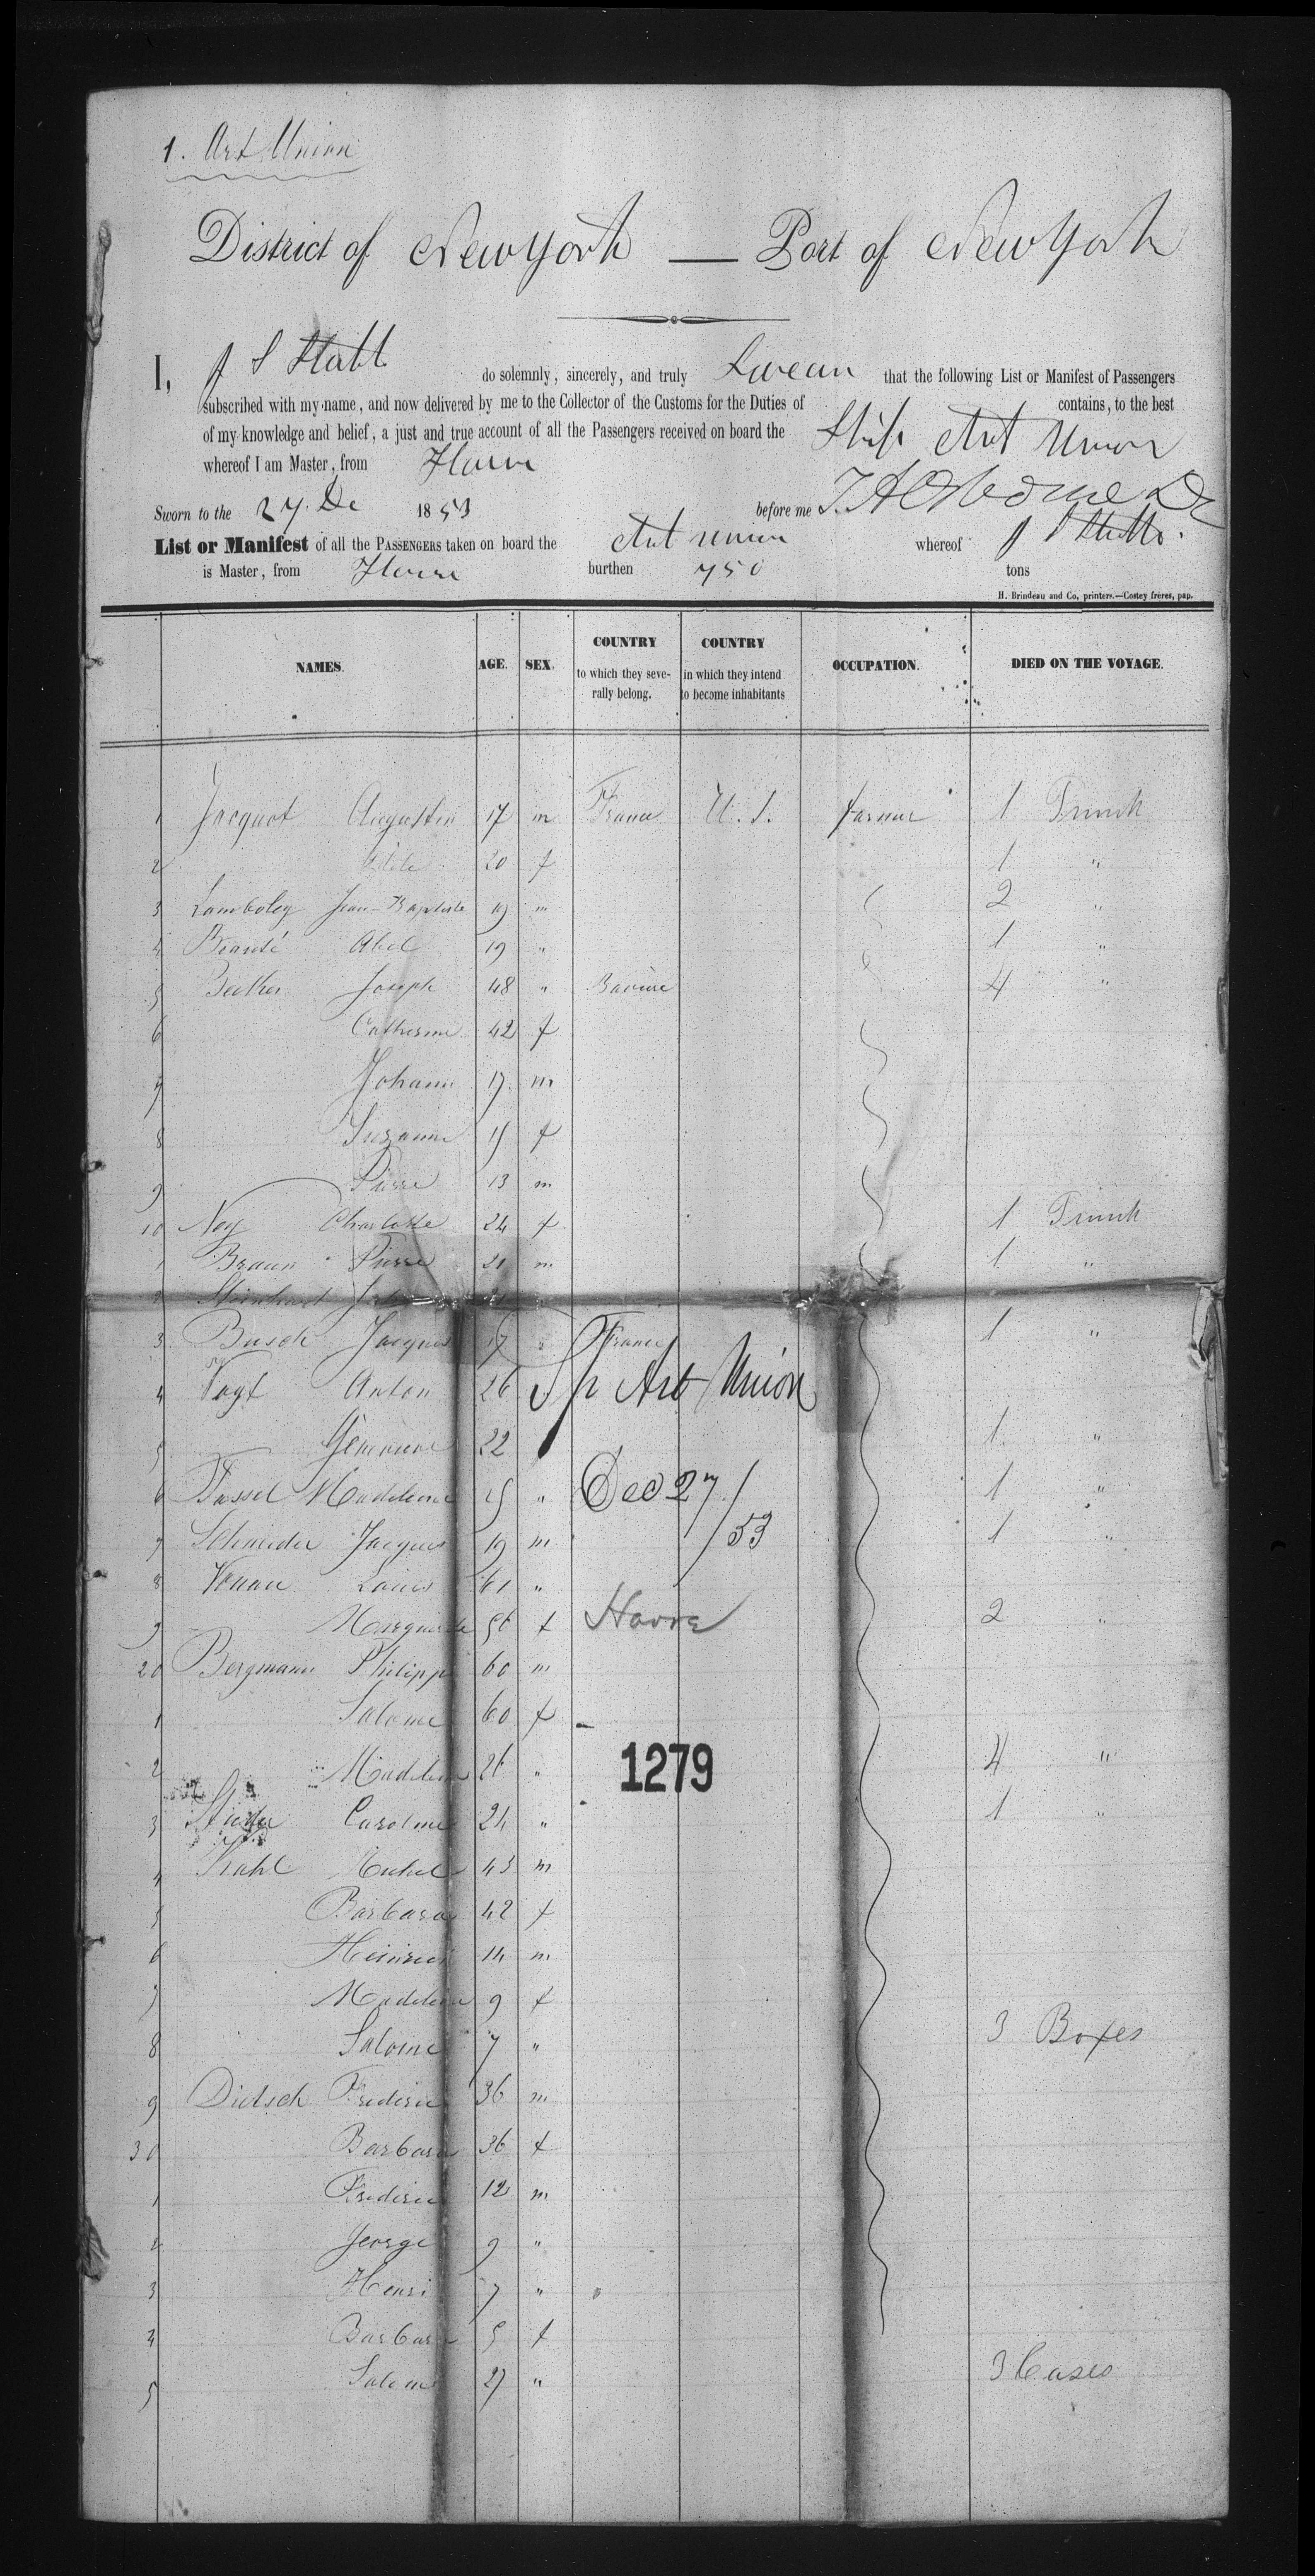 1. Art Union
District of New York — Port of New York
I, J S Stahl do solemnly, sincerely, and truly Swear that the following List or Manifest of Passengers
subscribed with my name, and now delivered by me to the Collector of the Customs for the Duties of contains, to the best
of my knowledge and belief, a just and true account of all the Passengers received on board the Ship Art Union
whereof I am Master, from Havre
Sworn to the 27 De 1853 before me
List or Manifest of all the PASSENGERS taken on board the Art Union whereof J S
is Master, from Havre burthen 750 tons
H. Brindeau and Co, printers.—Costey frères, pap.
NAMES. AGE. SEX. COUNTRY to which they severally belong. COUNTRY in which they intend to become inhabitants OCCUPATION. DIED ON THE VOYAGE.
1 Jacquot Augustin 17 m France U.S. farmer 1 Trunk
2 20 f 1 "
3 Lamboley Jean-Baptiste 19 m 2 "
4 Abel 19 " 1 "
5 Joseph 48 " Bavière 4 "
6 Catherine 42 f
7 Johann 17 m
8 Suzanne 15 f
9 Pierre 13 m
10 Ney Charlotte 24 f 1 Trunk
1 Braun Pierre 21 m 1 "
2
3 Busch Jacques 17 " France 1 "
4 Vogt Anton 26
Sp Art Union
5 22 1 "
6 Madeleine 15 " 1 "
Dec 27/53
7 Schneider Jacques 19 m 1 "
8 Louis 61 "
9 56 f 2 "
Havre
20 Bergmann Philipp 60 m
1 Salome 60 f
2 26 " 4 "
1279
3 Caroline 24 " 1 "
4 Stahl Michel 43 m
5 Barbara 42 f
6 14 m
7 9 f
8 Salome 7 " 3 Boxes
9 Dietsch Frederic 36 m
30 Barbara 36 f
1 Frederic 12 m
2 George 9 "
3 Henri 7 "
4 Barbara 5 f
5 Salome 27 " 3 Cases